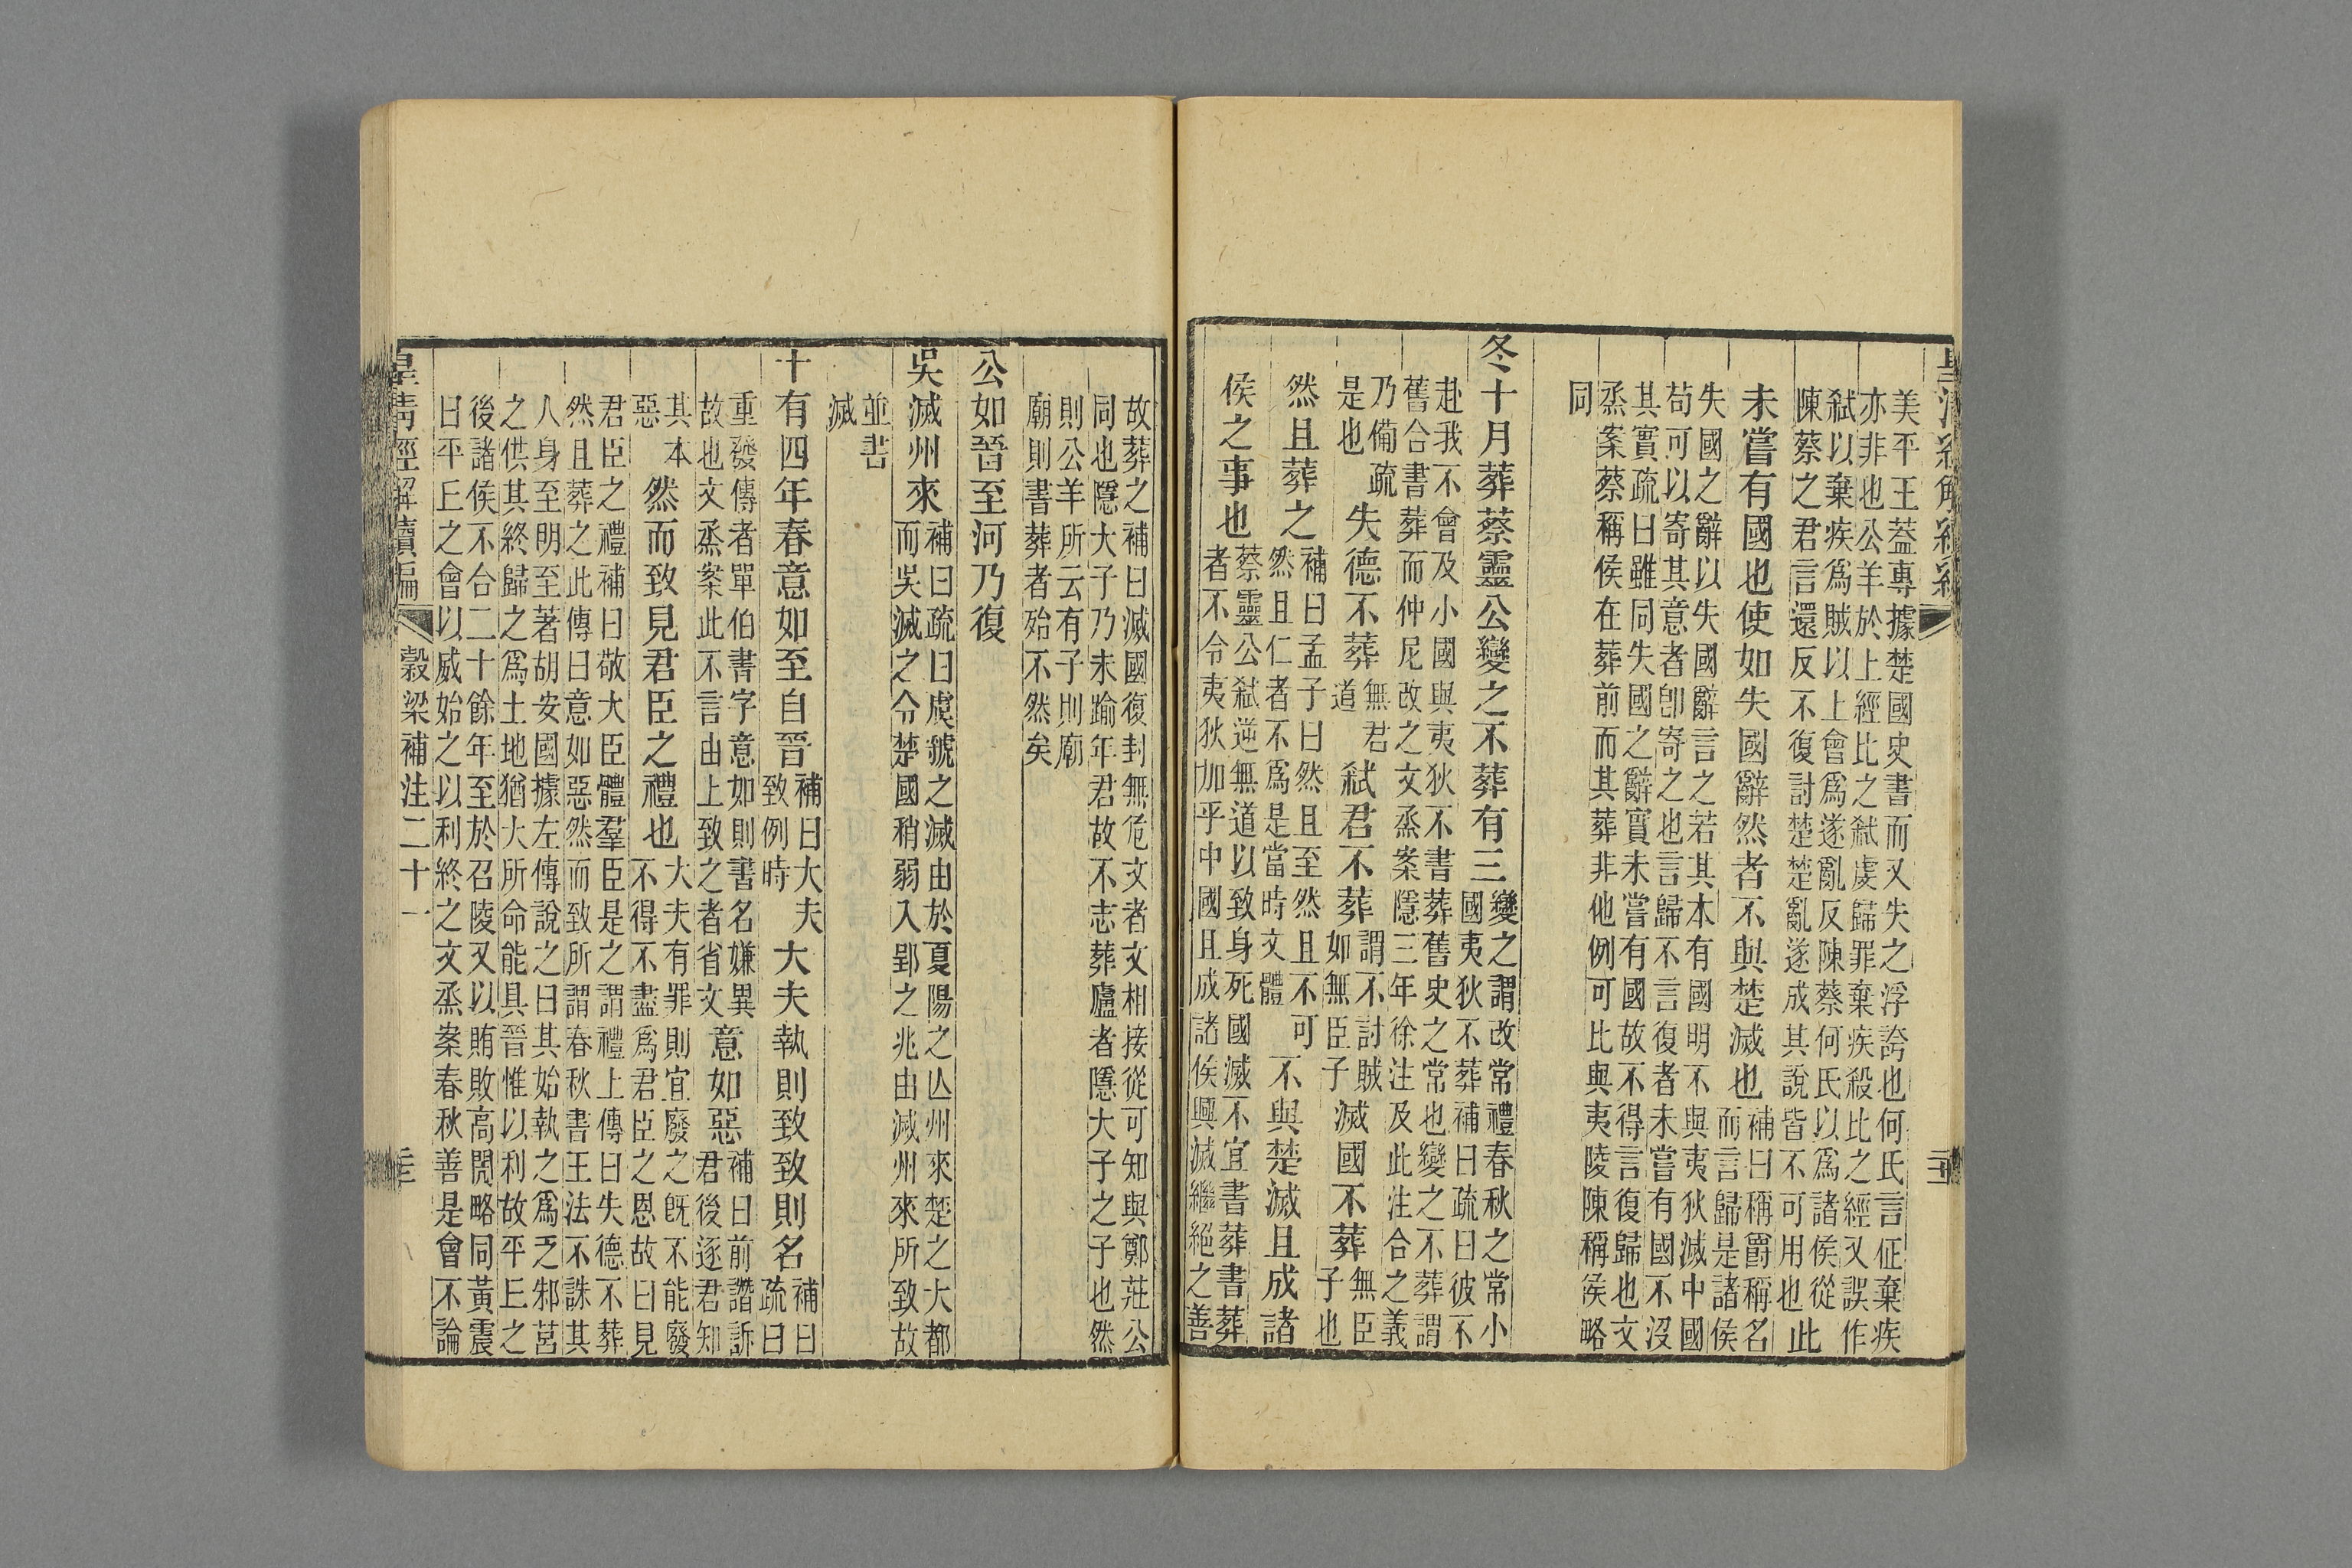 美平王蓋專據楚國史書而又失之浮誇也何氏言征棄疾
亦非也公羊於上經比之弑虔歸罪棄疾殺比之經又誤作
弑以棄疾爲賊以上會爲遂亂反陳蔡何氏以爲諸侯從
陳蔡之君言還反不復討楚楚亂遂成其說皆不可用也此
未嘗有國也使如失國辭然者不與楚滅也補曰稱爵稱名而言歸是諸侯
失國之辭以失國辭言之若其本有國明不與夷狄滅中國
苟可以寄其意者卽寄之也言歸不言復者未嘗有國不沒
其實疏曰雖同失國之辭實未嘗有國故不得言復歸也文
烝案蔡稱侯在葬前而其葬非他例可比與夷陵陳稱侯略
同
冬十月葬蔡靈公變之不葬有三變之謂改常禮春秋之常小國夷狄不葬補曰疏曰彼不
赴我不會及小國與夷狄不書葬舊史之常也變之不葬謂
舊合書葬而仲尼改之文烝案隱三年徐注及此注合之義
乃備疏是也失德不葬無君道弑君不葬謂不討賊如無臣子滅國不葬無臣子也
然且葬之補曰孟子曰然且至然且不可然且仁者不爲是當時文體不與楚滅且成諸
侯之事也蔡靈公弑逆無道以致身死國滅不宜書葬書葬者不令夷狄加乎中國且成諸侯興滅繼絕之善
故葬之補曰滅國復封無危文者文相接從可知與鄭莊公
同也隱大子乃未踰年君故不志葬廬者隱大子之子也然
則公羊所云有子則廟
廟則書葬者殆不然矣
公如晉至河乃復
吳滅州來補曰疏曰虞虢之滅由於夏陽之亾州來楚之大都而吳滅之令楚國稍弱入郢之兆由滅州來所致故
並書
滅
十有四年春意如至自晉補曰大夫致例時大夫執則致致則名補曰疏曰
重發傳者單伯書字意如則書名嫌異
故也文烝案此不言由上致之者省文意如惡補曰前譖訴君後逐君知
其本惡然而致見君臣之禮也大夫有罪則宜廢之旣不能廢不得不盡爲君臣之恩故曰見
君臣之禮補曰敬大臣體羣臣是之謂禮上傳曰失德不葬
然且葬之此傳曰意如惡然而致所謂春秋書王法不誅其
人身至明至著胡安國據左傳說之曰其始執之爲乏邾莒
之供其終歸之爲土地猶大所命能具晉惟以利故平丘之
後諸侯不合二十餘年至於召陵又以賄敗高閌略同黃震
曰平丘之會以威始之以利終之文烝案春秋善是會不論
皇清經解續編
穀梁補注二十一